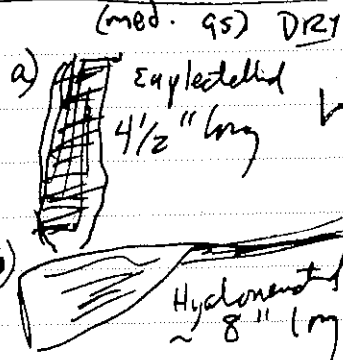 (med. qs) DRY
a) Euplectellid
4 1/2" long
Hyalonematid
~ 8" long